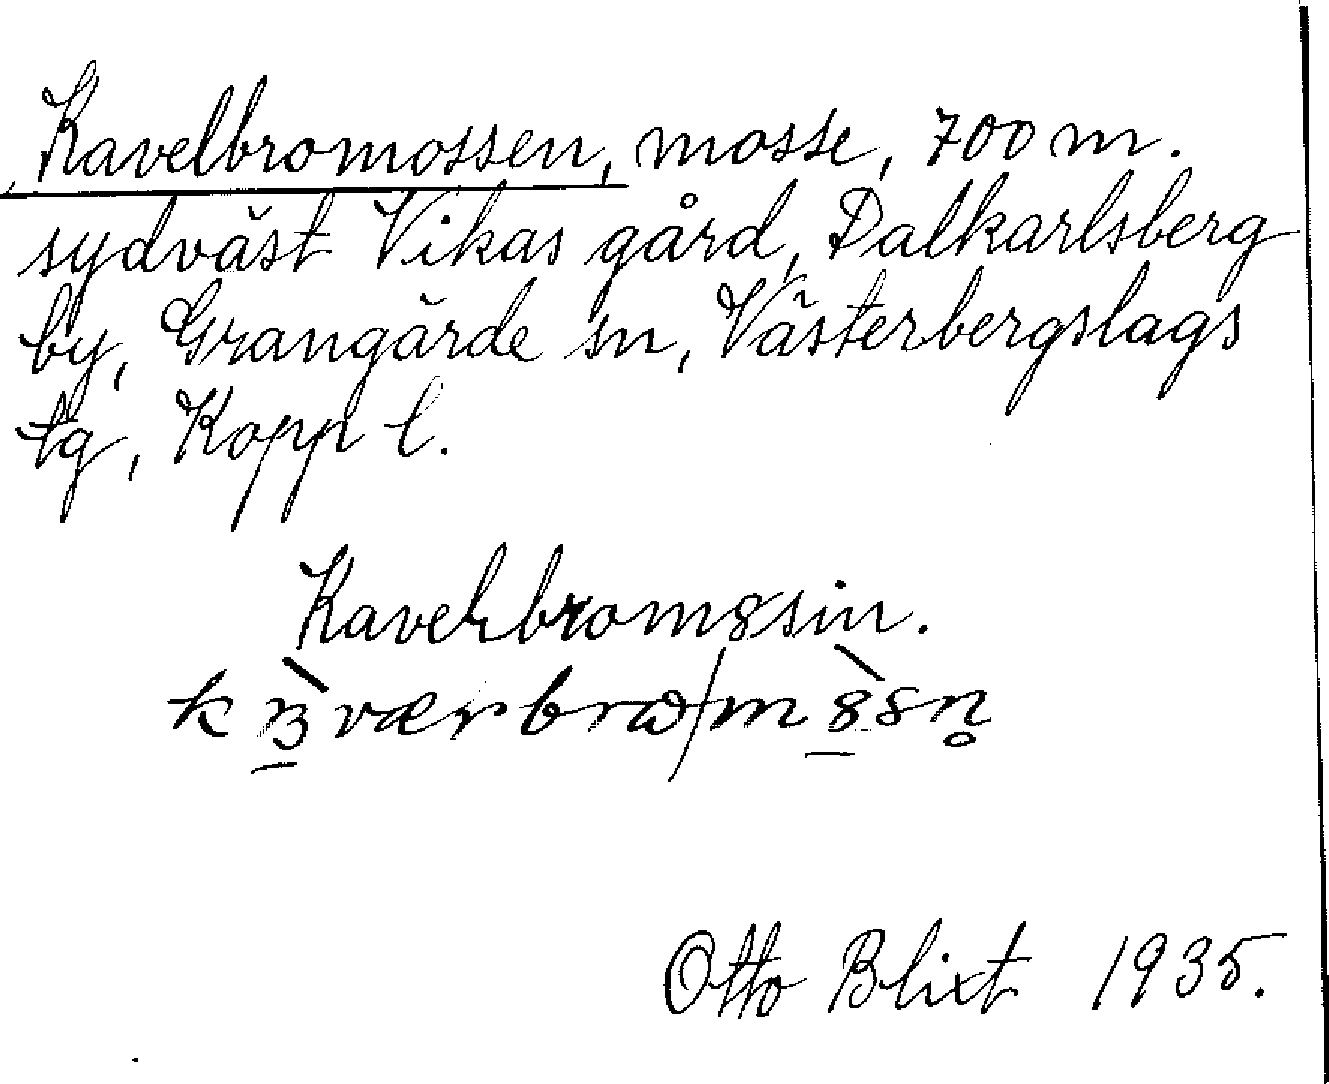 Kavelbromossen, mosse, 700 m.
sydväst Vikas gård, Dalkarlsberg
by, Grangärde sn, Västerbergslags
tg, Kopp l.
Otto Blixt 1935.